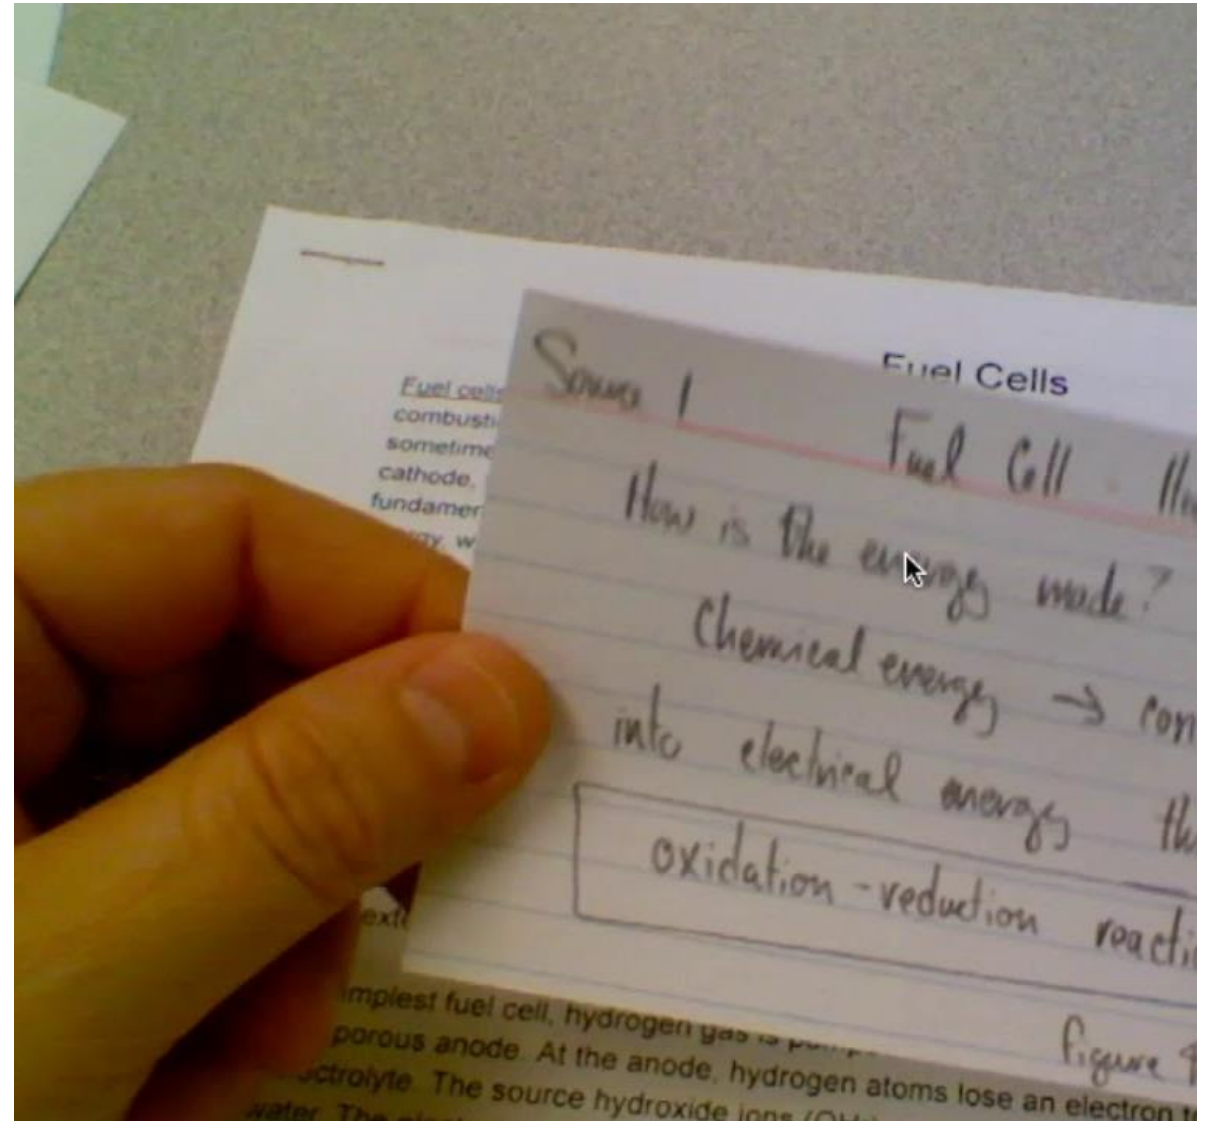 Fuel Cells
Fuel cells
combusti
sometime
cathode,
fundamen
gy, w
Source 1
Fuel Cell
How is the energy made?
Chemical energy → con
into electrical energy th
oxidation-reduction reacti
figure
exte
implest fuel cell, hydrogen gas is pump
porous anode. At the anode, hydrogen atoms lose an electron t
ctrolyte. The source hydroxide ions (OH
water. The